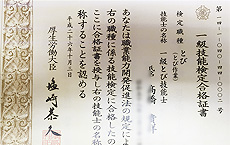 第一四-一-〇四-四-〇〇〇二号
一級技能検定合格証書
検定職種 とび
(とび作業)
技能士の名称 一級とび技能士
氏名 高橋
あなたは職業能力開発促進法の規定によ
右の職種に係る技能検定に合格したので
ここに合格証書を授与し右の技能士の名称
称することを認める
平成二十六年十月三日
厚生労働大臣
塩崎恭久